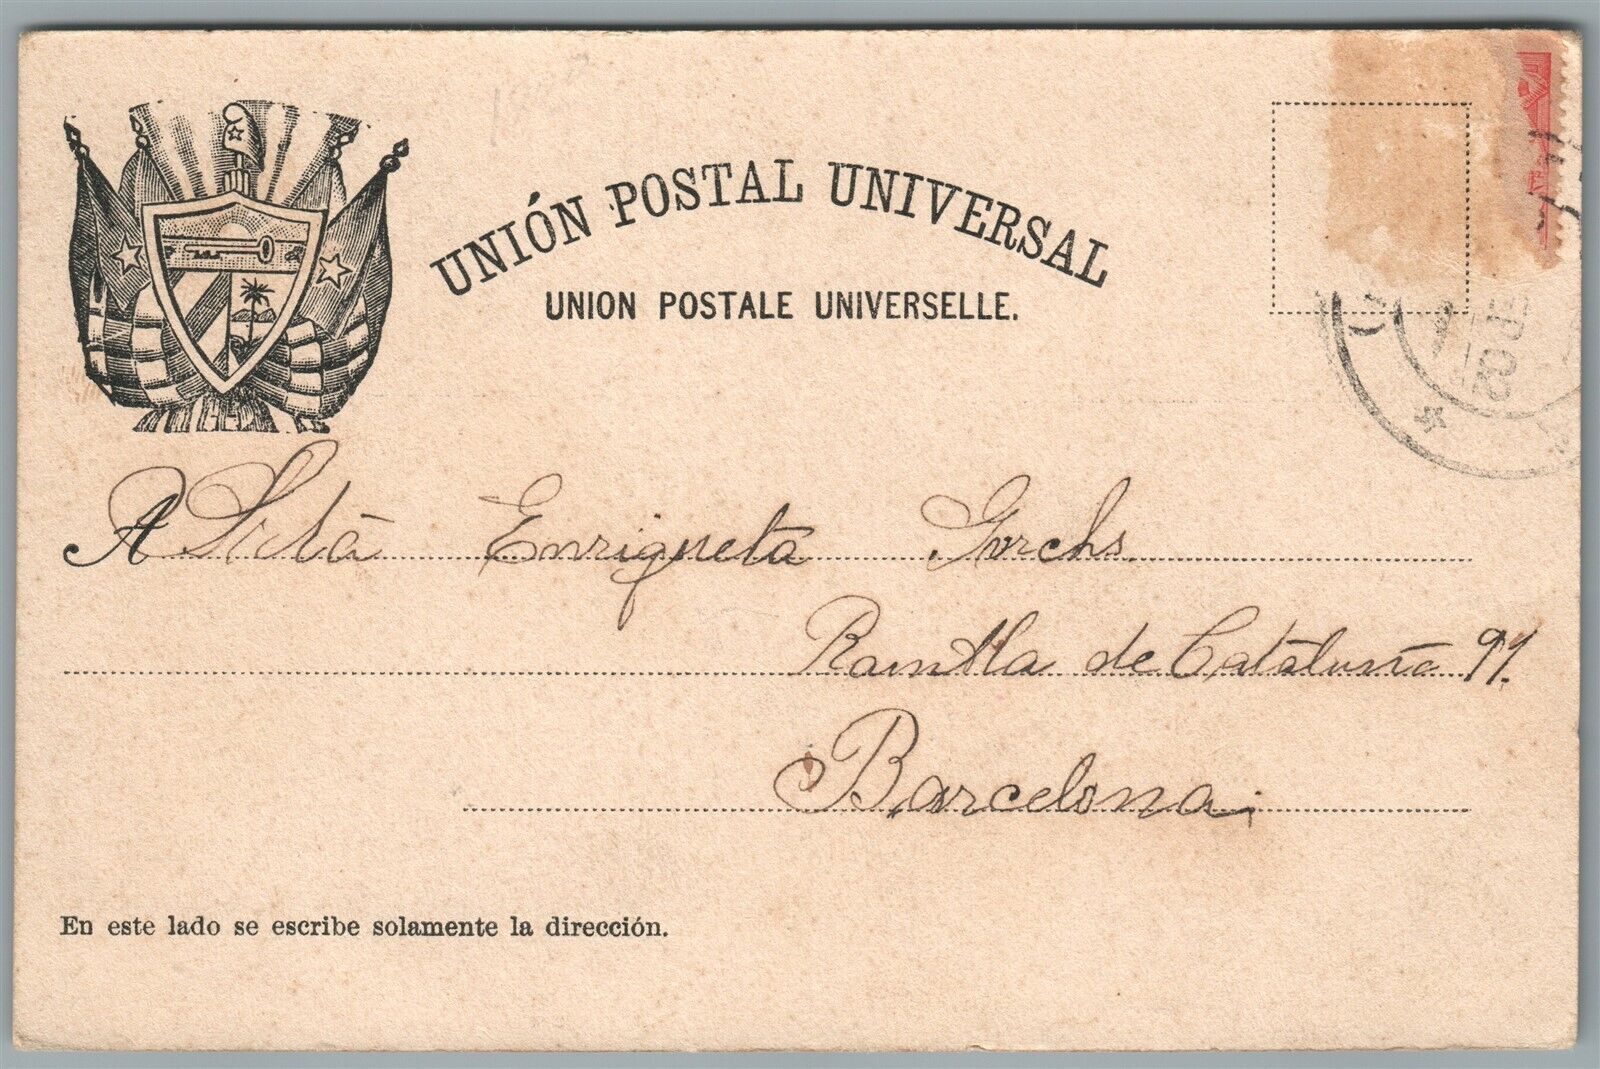 UNIÓN POSTAL UNIVERSAL
UNION POSTALE UNIVERSELLE.
A Srtã Enriqueta Gorchs
Rambla de Cataluña 91.
Barcelona.
En este lado se escribe solamente la dirección.